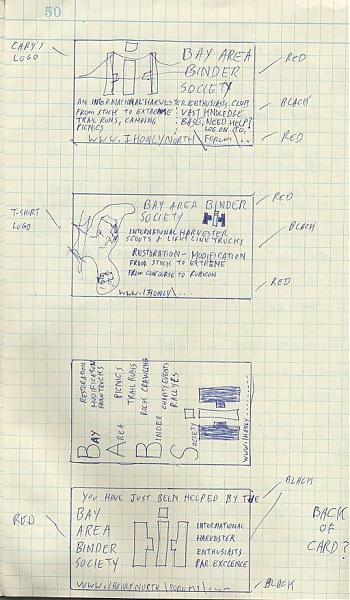 50
CARY'S
LOGO
BAY AREA
BINDER
SOCIETY
RED
AN INTERNATIONAL HARVESTER ENTHUSIASTS CLUB
FROM STOCK TO EXTREME
TRAIL RUNS, CAMPING
PICNICS
VAST KNOWLEDGE
BASE, NEED HELP?
LOG ON TO,
BLACK
WWW.IHONLYNORTH\FORUM\..
RED
T-SHIRT
LOGO
BAY AREA BINDER
SOCIETY
RED
INTERNATIONAL HARVESTER
SCOUTS & LIGHT LINE TRUCKS
BLACK
RESTORATION - MODIFICATION
FROM STOCK TO EXTREME
FROM CONCOURSE TO RUBICON
WWW.IHONLY\...
RED
BAY
RESTORATION
MODIFICATION
AREA
PICNICS
TRAIL RUNS
ROCK CRAWLING
BINDER
RALLYES
SOCIETY
YOU HAVE JUST BEEN HELPED BY THE
BLACK
RED
BAY
AREA
BINDER
SOCIETY
INTERNATIONAL
HARVESTER
ENTHUSIASTS
PAR EXCLENCE
BACK
OF
CARD?
WWW.IHONLYNORTH\FORUMS\...
BLACK